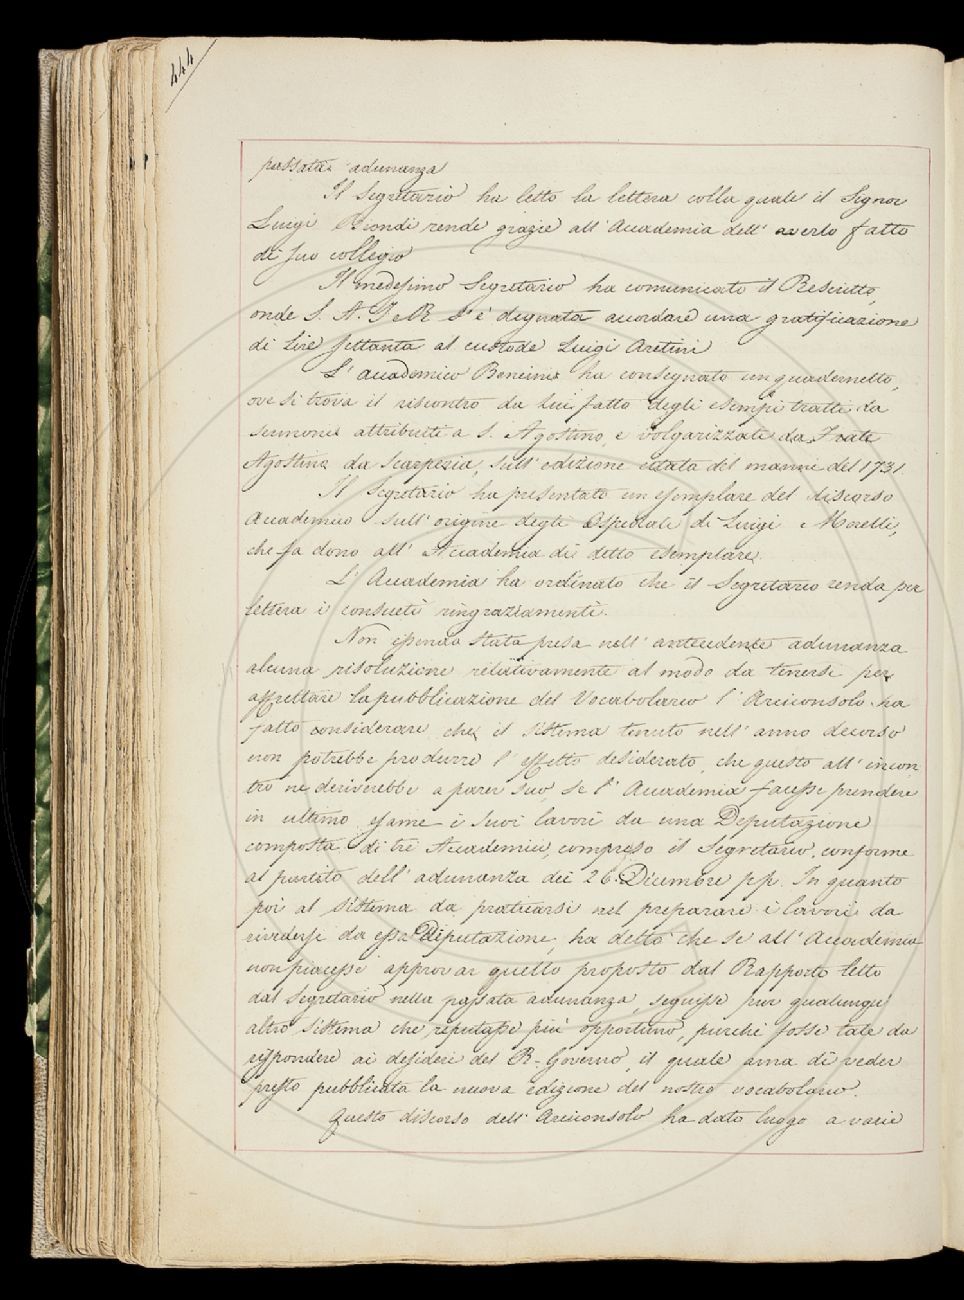 444
passata adunanza
Il Segretario ha letto la lettera colla quale il Signor
Luigi Biondi rende grazie all' Accademia dell' averlo fatto
di suo collegio
Il medesimo Segretario ha comunicato il Rescritto,
onde S. A. I. e R. s' è degnata accordare una gratificazione
di Lire settanta al custode Luigi Aretini
L' accademico Bencini ha consegnato un quadernetto,
ove si trova il riscontro da lui fatto degli esempi tratti da
sermoni attribuiti a S. Agostino, e volgarizzati da Frate
Agostino da Scarperia, sull' edizione citata del manni del 1731.
Il Segretario ha presentato un esemplare del discorso
Accademico sull' origine degli Ospedali di Luigi Morelli,
che fa dono all' Accademia di detto esemplare.
L' Accademia ha ordinato che il Segretario renda per
lettera i consueti ringraziamenti.
Non essendo stata presa nell' antecedente adunanza
alcuna risoluzione relativamente al modo da tenersi per
affrettare la pubblicazione del Vocabolario l' Arciconsolo ha
fatto considerare che il sistema tenuto nell' anno decorso
non potrebbe produrre l' effetto desiderato, che questo all' incon
tro ne deriverebbe a parer suo, se l' Accademia facesse prendere
in ultimo esame i suoi lavori da una Deputazione
composta di tre Accademici, compreso il Segretario, conforme
al partito dell' adunanza dei 26. Dicembre pp. In quanto
poi al sistema da praticarsi nel preparare i lavori da
rivedersi da essa Deputazione, ha detto che se all' Accademia
non piacesse approvar quello proposto dal Rapporto letto
dal Segretario nella passata adunanza, seguisse pur qualunque
altro sistema che reputasse più opportuno, purchè fosse tale da
rispondere ai desideri del R. Governo, il quale ama di veder
presto pubblicata la nuova edizione del nostro vocabolario.
Questo discorso dell' Arciconsolo ha dato luogo a varie